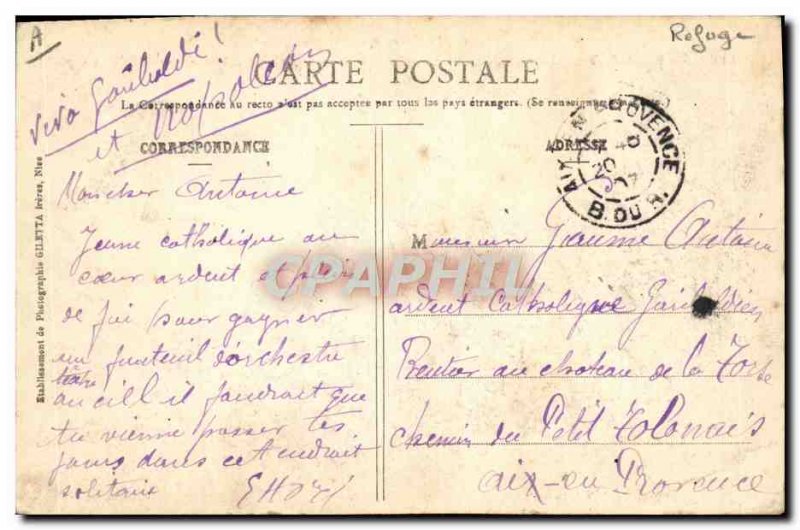 A
Refuge
Vive Garibaldi!
et Napoleon
CARTE POSTALE
La Correspondance au recto n'est pas acceptée par tous les pays étrangers. (Se renseigner
CORRESPONDANCE
ADRESSE
AIX-EN-PROVENCE
20
07
B. DU R.
Etablissement de Photographie GILETTA frères, Nice
CPAPHIL
Mon cher Antoine
Jeune catholique au
cœur ardent et plein
de foi pour gagner
un fauteuil d'orchestre
au ciel il faudrait que
tu vienne passer tes
jours dans cet endroit
solitaire
Monsieur Jaume Antoine
ardent Catholique Garibaldien
Rentier au chateau de la
chemin du Petit Tolonais
aix-en Provence